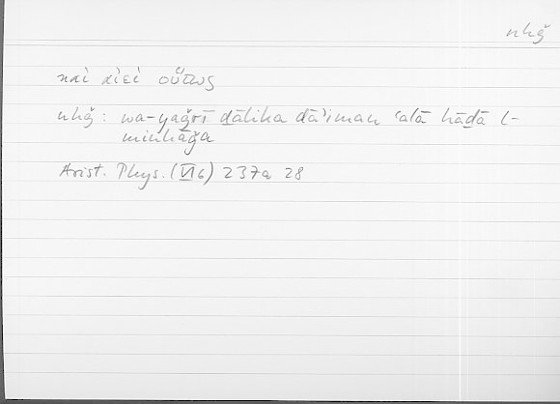 nhǧ
καὶ αἰεὶ οὕτως
nhǧ: wa-yaǧrī ḏālika dāʾiman ʿalā hāḏā l-
minhāǧa
Arist. Phys. (VI 6) 237a 28